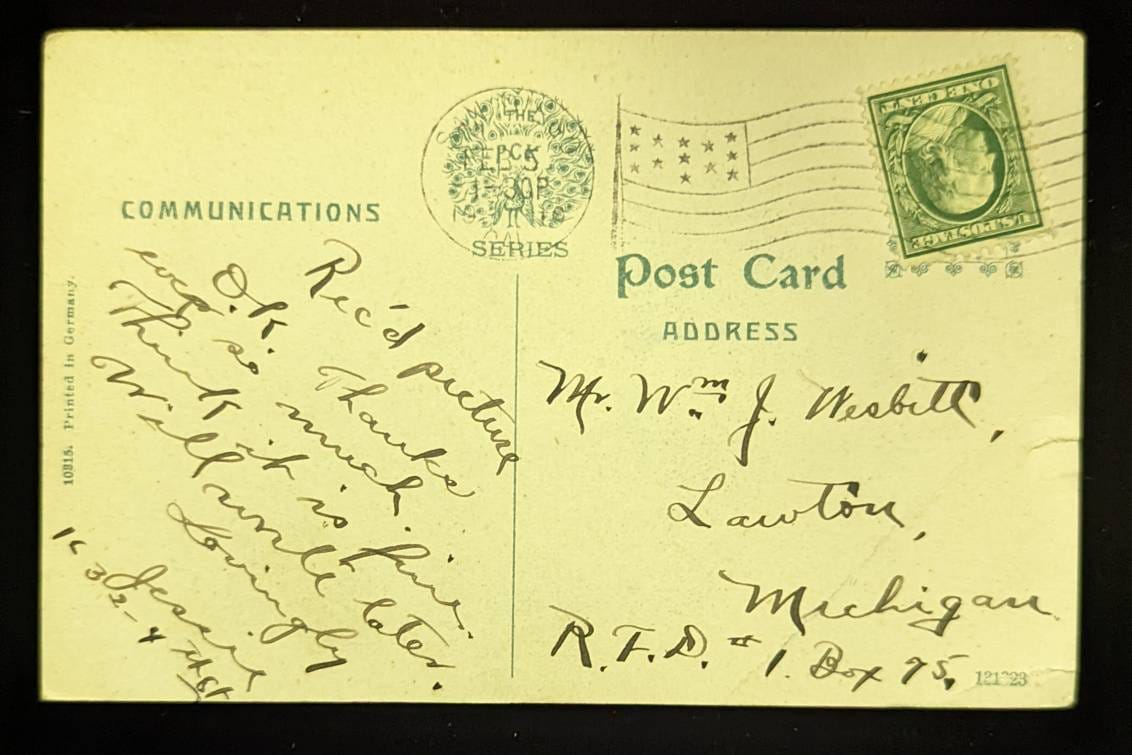 COMMUNICATIONS
THE
PCK
SERIES
FEB 5
1-30P
Post Card
ADDRESS
ONE CENT
U.S. POSTAGE
10315. Printed in Germany.
Rec'd picture
O.K. Thanks
ever so much.
Think it is fine.
Will write later.
Lovingly
Jessie
Mr. Wm J. Nesbitt,
Lawton,
Michigan
R.F.D. # 1. Box 75.